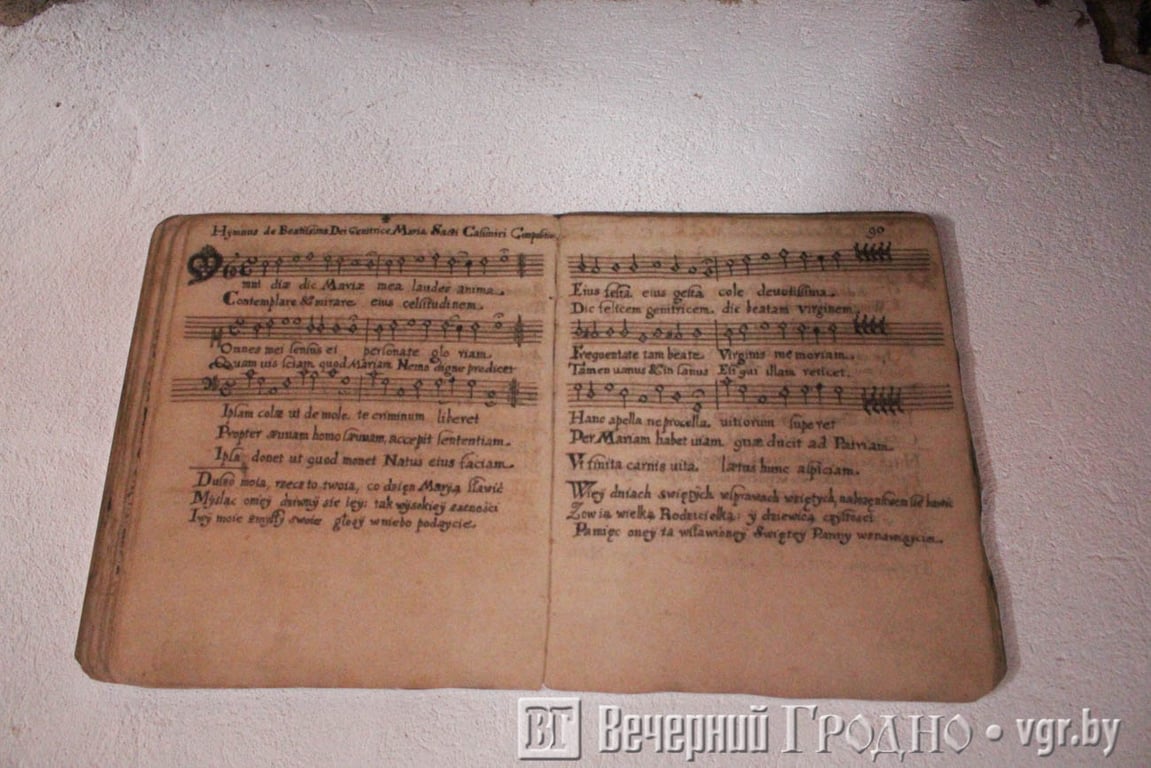 Hymnus de Beatissima Dei Genitrice Maria Sacti Casimiri
Omni diæ dic Mariæ mea laudes anima.
Contemplare & mirare eius celsitudinem.
Omnes mei sensus ei personate glo riam.
Quam uis sciam quod Mariam Nemo digne predicet
Ipsam colæ ut de mole. te criminum liberet
Propter æuuam homo sæuuam, accepit sententiam.
Ipsa donet ut quod monet Natus eius faciam.
Duszo moia, rzecz to twoia, co dzien Marya sławić
Myslac oney dziwuy sie iey: tak wysokiey zacności
Iwy moie zmysły swoie głosy wniebo podaycie.
90
Eius festa eius gesta cole deuotissima.
Dic felicem genitricem, dic beatam virginem.
Frequentate tam beatæ Virginis me moriam.
Tamen uanus & in sanus Est qui illam reticet.
Hanc apella ne procella. uitiorum supe ret
Per Mariam habet uiam quæ ducit ad Patriam.
Vt finita carnis uita. lætus hunc aspiciam.
Wiey dniach świętych wsprawach wziętych, bawić
Zowia wielką Rodzicielką: y dziewicą czystości
Pamięc oney ta wsławioney Swiętey Panny wznawiaycie.
ВГ Вечерний Гродно • vgr.by